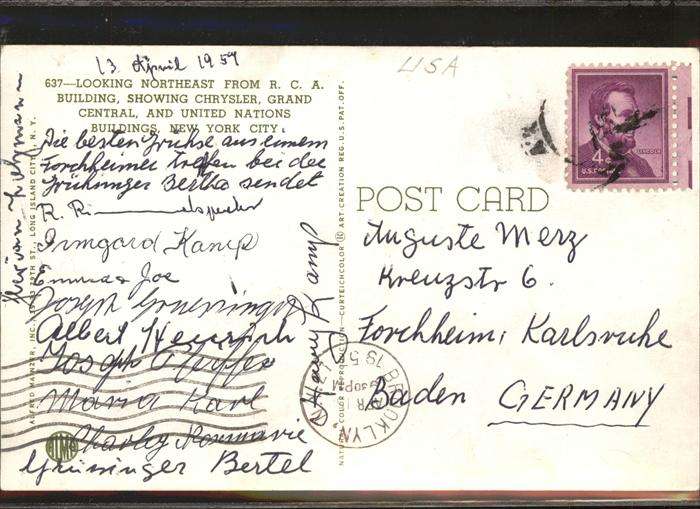 13. April 1957
USA
637—LOOKING NORTHEAST FROM R. C. A.
BUILDING, SHOWING CHRYSLER, GRAND
CENTRAL, AND UNITED NATIONS
BUILDINGS, NEW YORK CITY.
Die besten Grüsse aus einem
Forchheimer treffen bei der
Grüninger Bertha sendet
R.
Irmgard Kamp
Emma & Joe
Joseph Grueninger
Albert Heinrich
Joseph Pfeiffer
Maria Karl
Charley
Grüninger Bertel
Harry Kamp
ALFRED MAINZER, INC., 39TH ST., LONG ISLAND CITY, N. Y.
NATURAL COLOR REPRODUCTION—CURTEICHCOLOR ® ART CREATION REG. U.S. PAT. OFF.
POST CARD
Auguste Merz
Kreuzstr 6.
Forchheim, Karlsruhe
Baden GERMANY
4¢
LINCOLN
U.S. POSTAGE
BROOKLYN
930PM
195